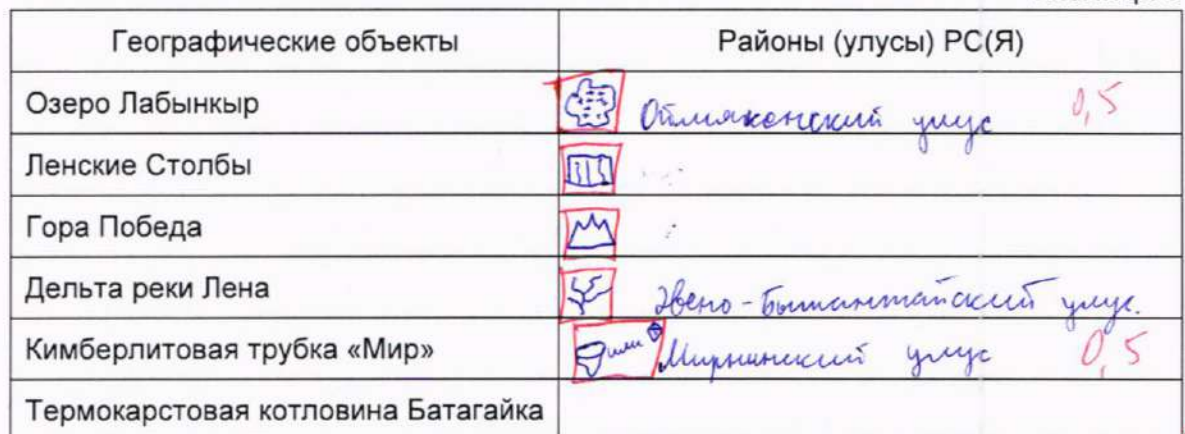 Географические объекты Районы (улусы) РС(Я)
Озеро Лабынкыр Оймяконский улус 0,5
Ленские Столбы
Гора Победа
Дельта реки Лена Эвено-Бытантайский улус.
Кимберлитовая трубка «Мир» или Мирнинский улус 0,5
Термокарстовая котловина Батагайка